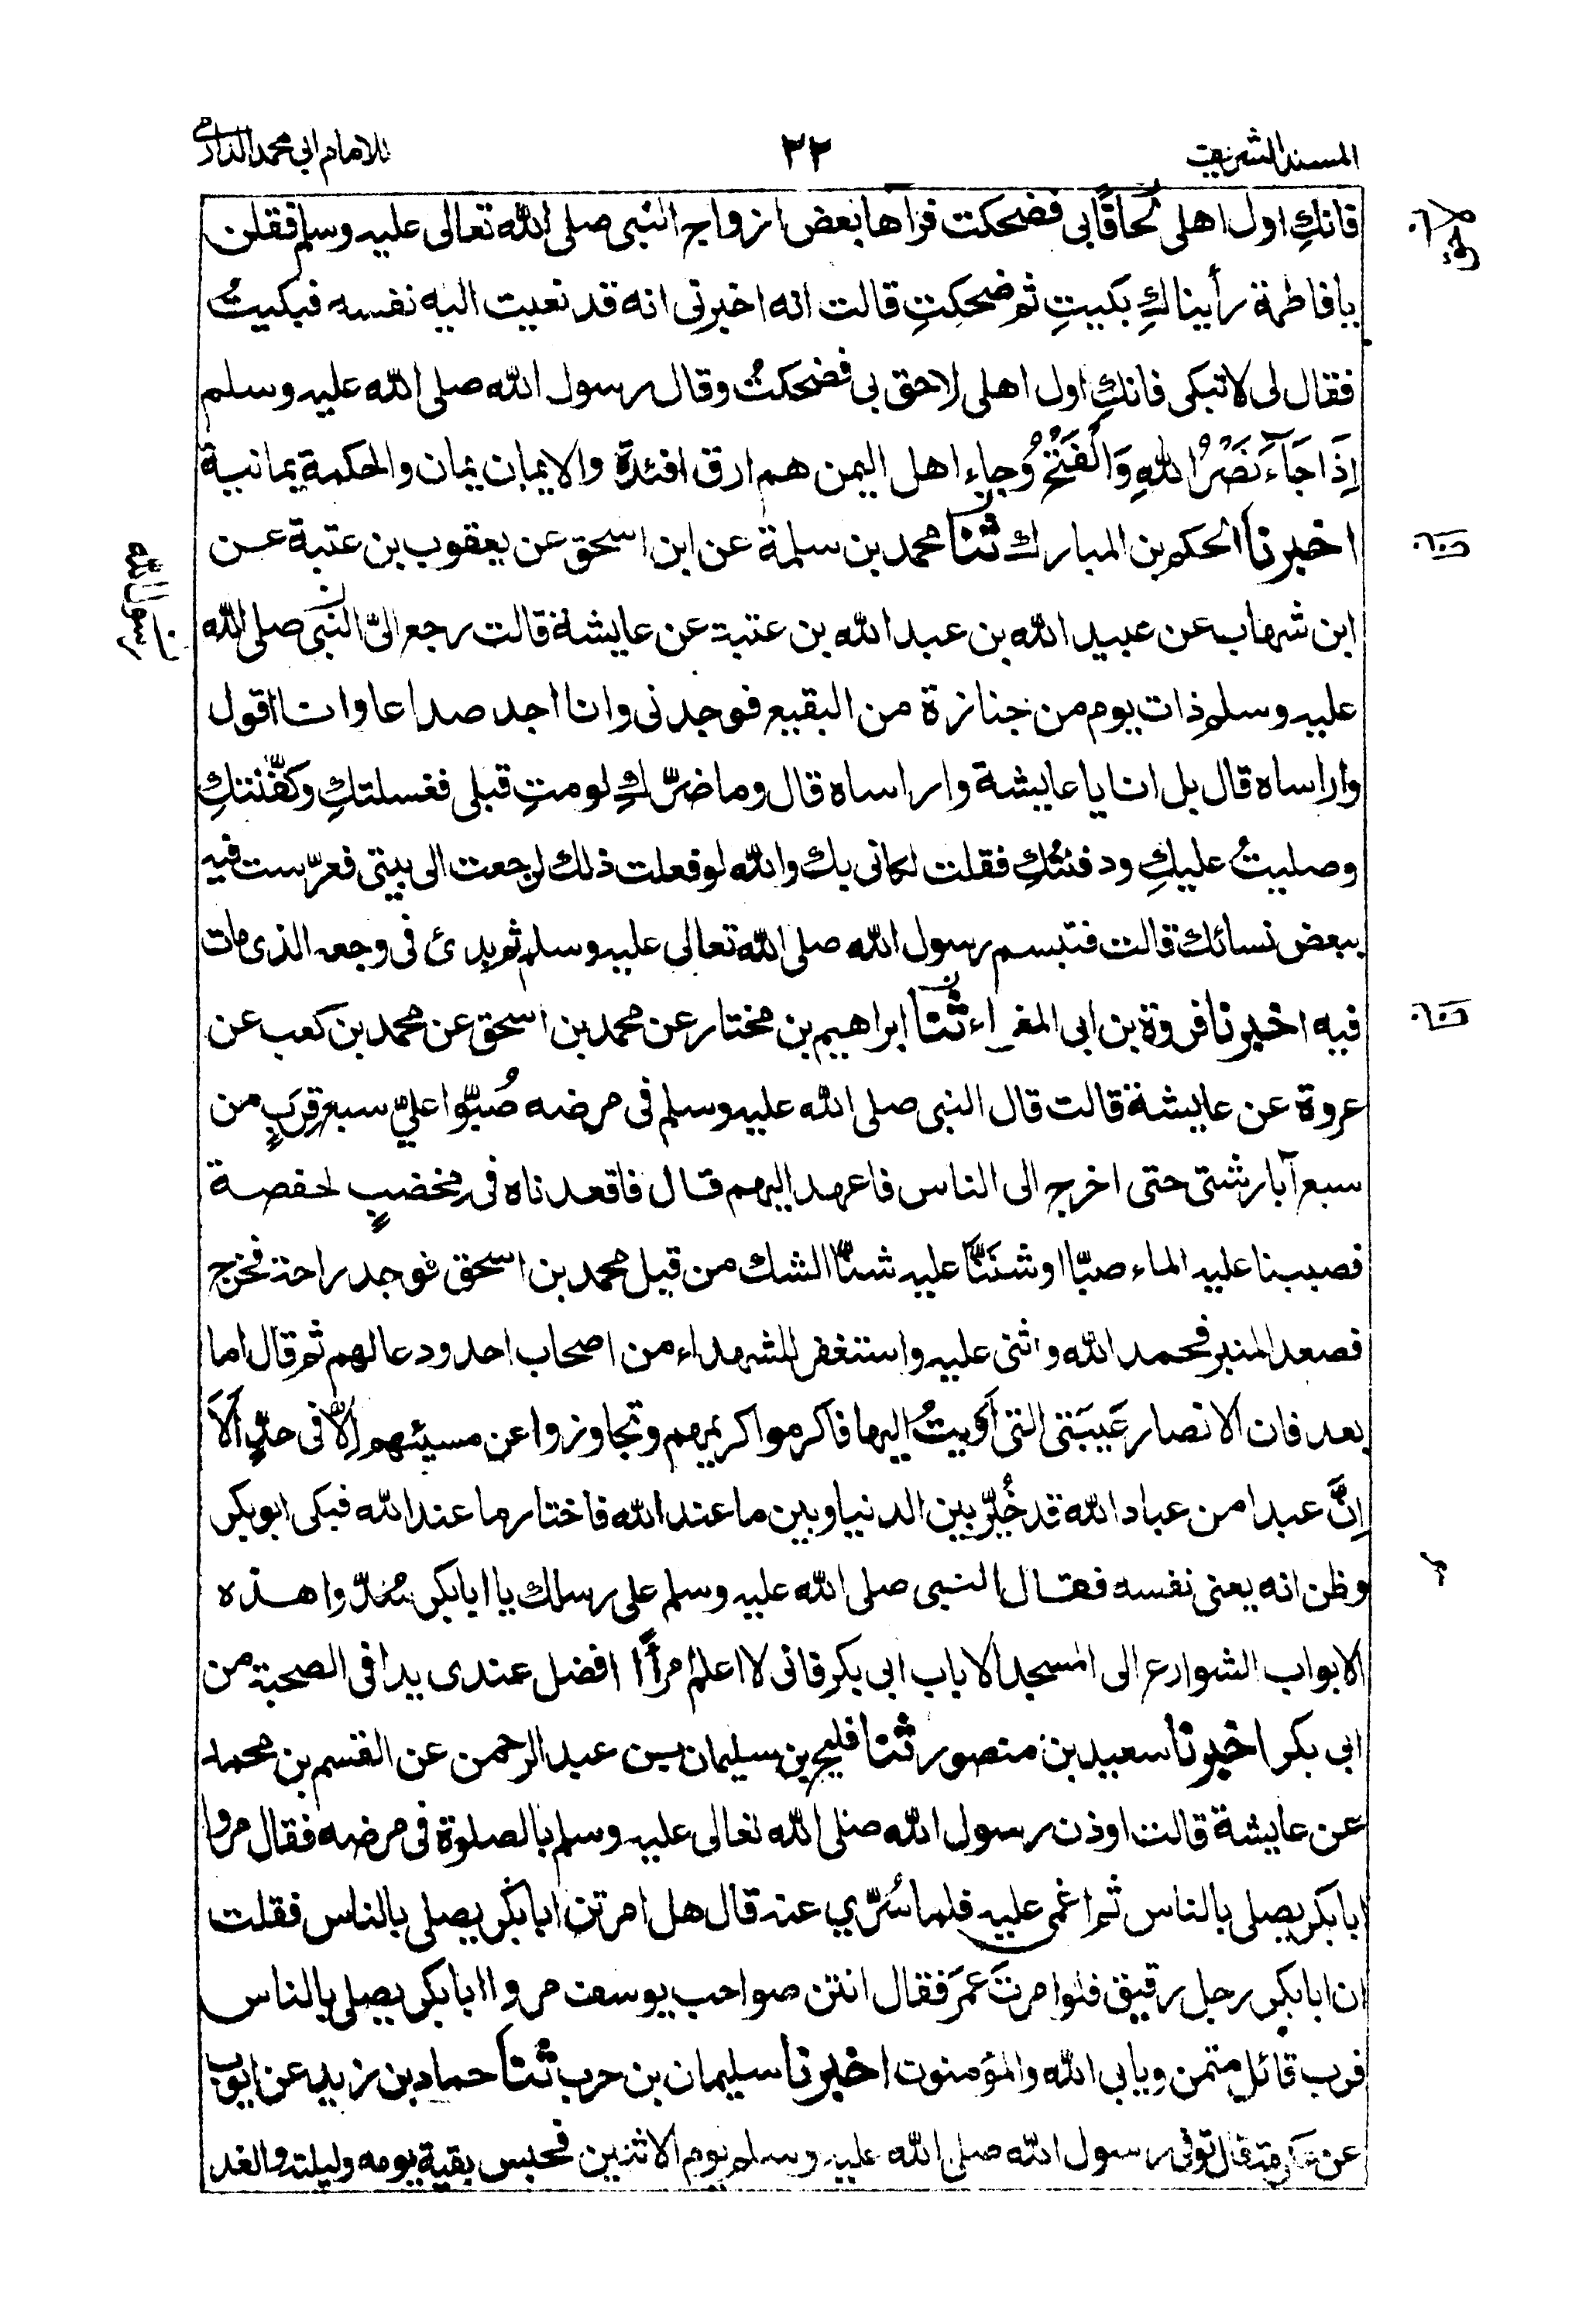 المسند الشريف
٢٢
للامام ابي محمد الدارمي
فانكِ اول اهلى لحاقًا بى فضحكت فرآها بعض ازواج النبى صلى الله تعالى عليه وسلم فقلن
يا فاطمة رأيناكِ بكيتِ ثم ضحكتِ قالت انه اخبرنى انه قد نعيت اليه نفسه فبكيتُ
فقال لى لا تبكى فانكِ اول اهلى لاحق بى فضحكتُ وقال رسول الله صلى الله عليه وسلم
اِذَا جَآءَ نَصْرُ اللهِ وَالْفَتْحُ وجاء اهل اليمن هم ارق افئدة والايمان يمان والحكمة يمانية
اخبرنا الحكم بن المبارك ثنا محمد بن سلمة عن ابن اسحق عن يعقوب بن عتبة عن
ابن شهاب عن عبيد الله بن عبد الله بن عتبة عن عايشة قالت رجع الىّ النبى صلى الله
رسول الله
عليه وسلم ذات يوم من جنازة من البقيع فوجدنى وانا اجد صداعا وانا اقول
وا راساه قال بل انا يا عايشة وا راساه قال وما ضرّكِ لو متِ قبلى فغسلتكِ وكفّنتكِ
وصليتُ عليكِ ودفنتُكِ فقلت لكانى بك والله لو فعلت ذلك لرجعت الى بيتى فعرّست فيه
ببعض نسائك قالت فتبسم رسول الله صلى الله تعالى عليه وسلم ثم بدئ فى وجعه الذى مات
فيه اخبرنا فروة بن ابى المغراء ثنا ابراهيم بن مختار عن محمد بن اسحق عن محمد بن كعب عن
عروة عن عايشة قالت قال النبى صلى الله عليه وسلم فى مرضه صُبّوا علىّ سبع قِرَبٍ من
سبع آبار شتى حتى اخرج الى الناس فاعهد اليهم قال فاقعدناه فى مخضبٍ لحفصة
فصببنا عليه الماء صبّا او شنَنَّا عليه شنًّا الشك من قبل محمد بن اسحق فوجد راحة فخرج
فصعد المنبر فحمد الله واثنى عليه واستغفر للشهداء من اصحاب احد ودعا لهم ثم قال اما
بعد فان الانصار عَيبَتى التى اَوَيتُ اليها فاكرموا كريمهم وتجاوزوا عن مسيئهم اِلّا فى حدٍّ اَلَا
اِنَّ عبدا من عباد الله قد خُيِّر بين الدنيا وبين ما عند الله فاختار ما عند الله فبكى ابو بكر
وظن انه يعنى نفسه فقال النبى صلى الله عليه وسلم على رسلك يا ابا بكر سُدّوا هذه
الابواب الشوارع الى المسجد الا باب ابى بكر فانى لا اعلم امرأً افضل عندى يدا فى الصحبة من
ابى بكر اخبرنا سعيد بن منصور ثنا فليح بن سليمان عن عبد الرحمن عن القسم بن محمد
عن عايشة قالت اوذن رسول الله صلى الله تعالى عليه وسلم بالصلوة فى مرضه فقال مروا
ابا بكر يصلى بالناس ثم اغمى عليه فلما سُرّي عنه قال هل امرتن ابا بكر يصلى بالناس فقلت
ان ابا بكر رجل رقيق فلو امرتَ عمَرَ فقال انتن صواحب يوسف مروا ابا بكر يصلى بالناس
فرب قائل متمن ويابى الله والمؤمنون اخبرنا سليمان بن حرب ثنا حماد بن زيد عن ايوب
عن عكرمة قال توفى رسول الله صلى الله عليه وسلم يوم الاثنين فحبس بقية يومه وليلته والغد